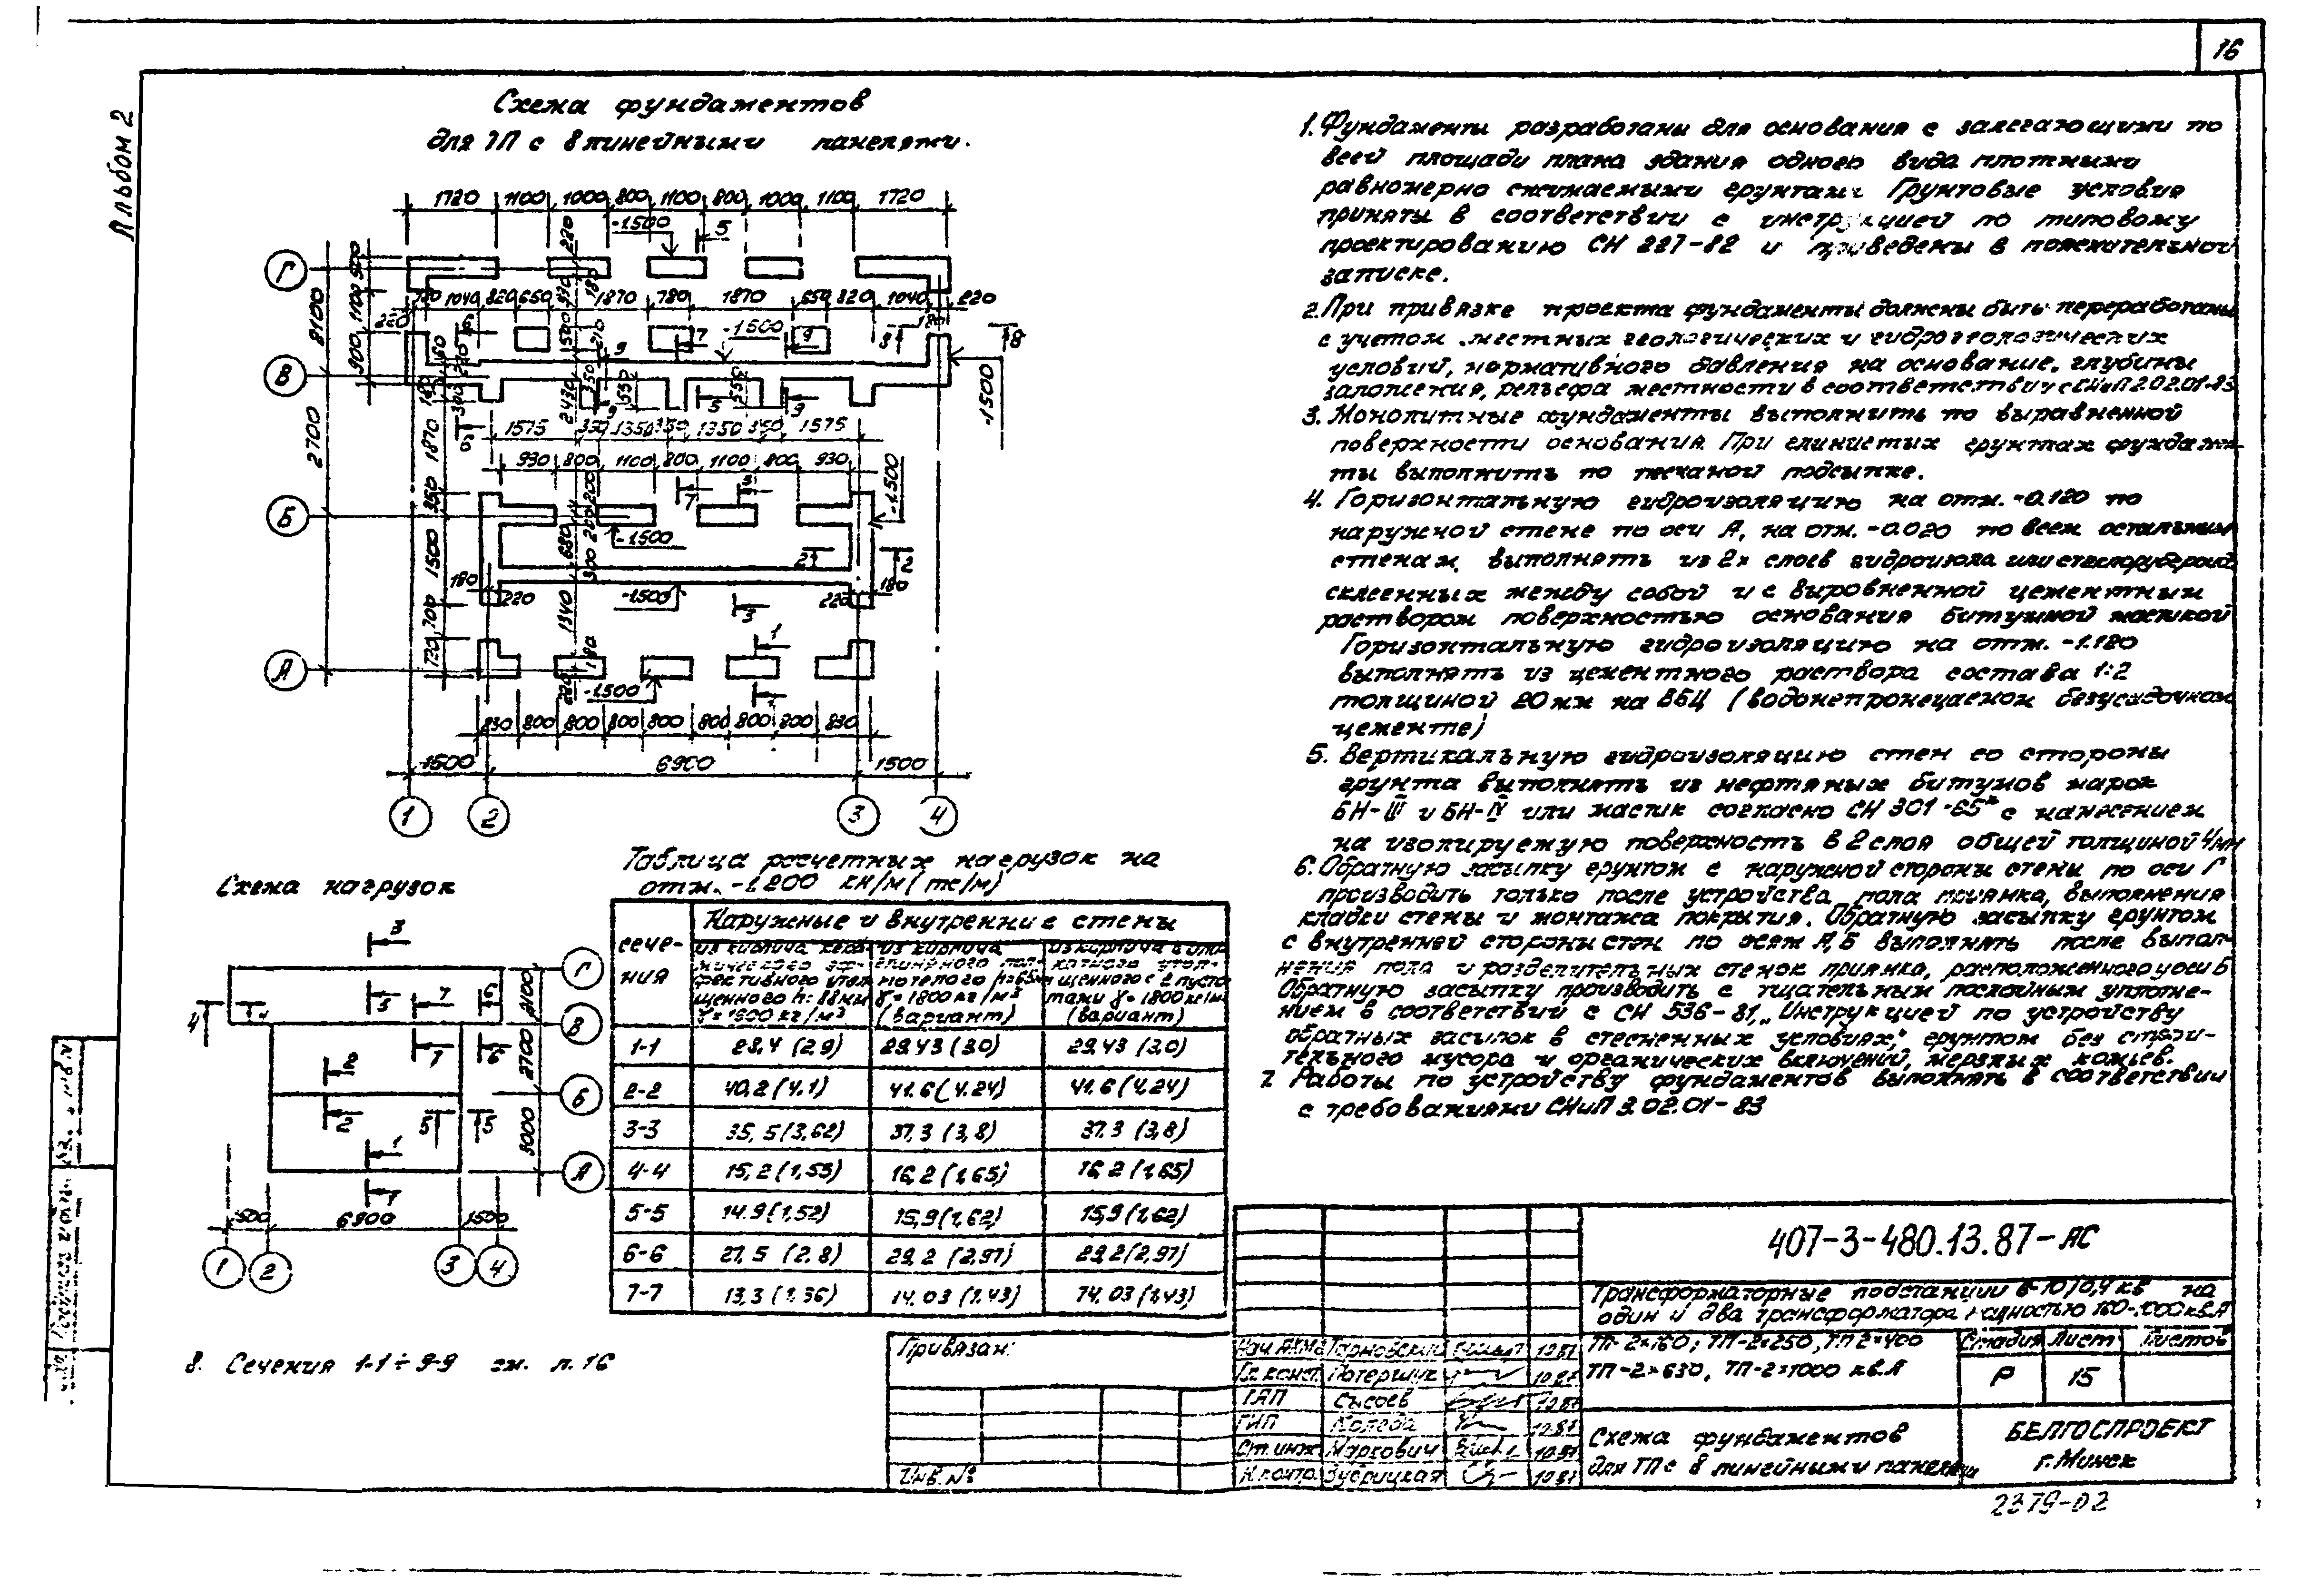 16
Альбом 2
Схема фундаментов
для ТП с 8 линейными панелями.
1720 1100 1000 800 1100 800 1000 1100 1720
-1.500 5
Г
1040 820 650 1870 780 1870 550 820 1040 220
220 6 7 -1.500 9 8 8
В
-1.500
1575 350 1350 350 1350 350 1575
930 800 1100 800 1100 800 930
-1.500
Б
-1.500
2 2
180 220 -1.500 220 180
3
1
А
-1.500
1
830 800 800 800 800 800 800 800 830
1500 6900 1500
1 2 3 4
8100
2700
1. Фундаменты разработаны для основания с залегающими по
всей площади плана здания одного вида плотными
равномерно сжимаемыми грунтами Грунтовые условия
приняты в соответствии с инструкцией по типовому
проектированию СН 227-82 и приведены в пояснительной
записке.
2. При привязке проекта фундаменты должны быть переработаны
с учетом местных геологических и гидрогеологических
условий, нормативного давления на основание, глубины
заложения, рельефа местности в соответствии с СНиП 2.02.01-83
3. Монолитные фундаменты выполнить по выравненной
поверхности основания. При глинистых грунтах фундамен-
ты выполнить по песчаной подсыпке.
4. Горизонтальную гидроизоляцию на отм. -0.120 по
наружной стене по оси А, на отм. -0.020 по всем остальным
стенам, выполнять из 2х слоев гидроизола или стеклорубероида
склеенных между собой и с выровненной цементным
раствором поверхностью основания битумной мастикой
Горизонтальную гидроизоляцию на отм. -1.120
выполнять из цементного раствора состава 1:2
толщиной 20 мм на ВБЦ (водонепроницаемом безусадочном
цементе)
5. Вертикальную гидроизоляцию стен со стороны
грунта выполнять из нефтяных битумов марок
БН-III и БН-IV или мастик согласно СН 301-65* с нанесением
на изолируемую поверхность в 2 слоя общей толщиной 4мм
6. Обратную засыпку грунтом с наружной стороны стены по оси Г
производить только после устройства пола приямка, выполнения
кладки стены и монтажа покрытия. Обратную засыпку грунтом
с внутренней стороны стен по осям А, Б выполнять после выпол-
нения пола и разделительных стенок приямка, расположенного у оси Б
Обратную засыпку производить с тщательным послойным уплотне-
нием в соответствий с СН 536-81, „Инструкцией по устройству
обратных засыпок в стесненных условиях", грунтом без строи-
тельного мусора и органических включений, мерзлых комьев.
7. Работы по устройству фундаментов выполнять в соответствии
с требованиями СНиП 3.02.01-83
Схема нагрузок
3
Г
4 4 5 7 6
В
7 6
2
Б
2 5 5
1
А
1
2100
2700
3000
1500 6900 1500
1 2 3 4
Таблица расчетных нагрузок на
отм. -1.200 кН/м (тс/м)
сече-
ния
Наружные и внутренние стены
из кирпича кера-
мического эф-
фективного утол
щенного h=88мм
γ=1600 кг/м³
из кирпича
глиняного пол-
нотелого h=65мм
γ=1800 кг/м³
(вариант)
из кирпича сили
катного утол-
щенного с 2 пусто
тами γ=1800 кг/м³
(вариант)
1-1 28,4 (2,9) 29.43 (3.0) 29.43 (3.0)
2-2 40,2 (4.1) 41.6 (4.24) 41.6 (4.24)
3-3 35,5 (3,62) 37.3 (3,8) 37.3 (3,8)
4-4 15,2 (1,55) 16,2 (1,65) 16,2 (1,65)
5-5 14.9 (1,52) 15,9 (1,62) 15,9 (1,62)
6-6 27,5 (2.8) 29,2 (2,97) 29,2 (2,97)
7-7 13,3 (1.36) 14.03 (1.43) 14.03 (1.43)
8. Сечения 1-1÷9-9 см. л. 16
Привязан:
Инв. №
Нач.АКМ2 Тарновский 10.87
Гл. конст. Потершук 10.87
ГАП Сысоев 10.87
ГИП Коледа 10.87
Ст. инж. Маркович 10.87
Н.контр. Зубрицкая 10.87
407-3-480.13.87-АС
Трансформаторные подстанции 6-10/0,4 кВ на
один и два трансформатора мощностью 160-1000 кВ.А
ТП-2×160; ТП-2×250, ТП 2×400
ТП-2×630, ТП-2×1000 кВ.А
Стадия Лист Листов
Р 15
Схема фундаментов
для ТП с 8 линейными панелями
БЕЛГОСПРОЕКТ
г. Минск
2379-02